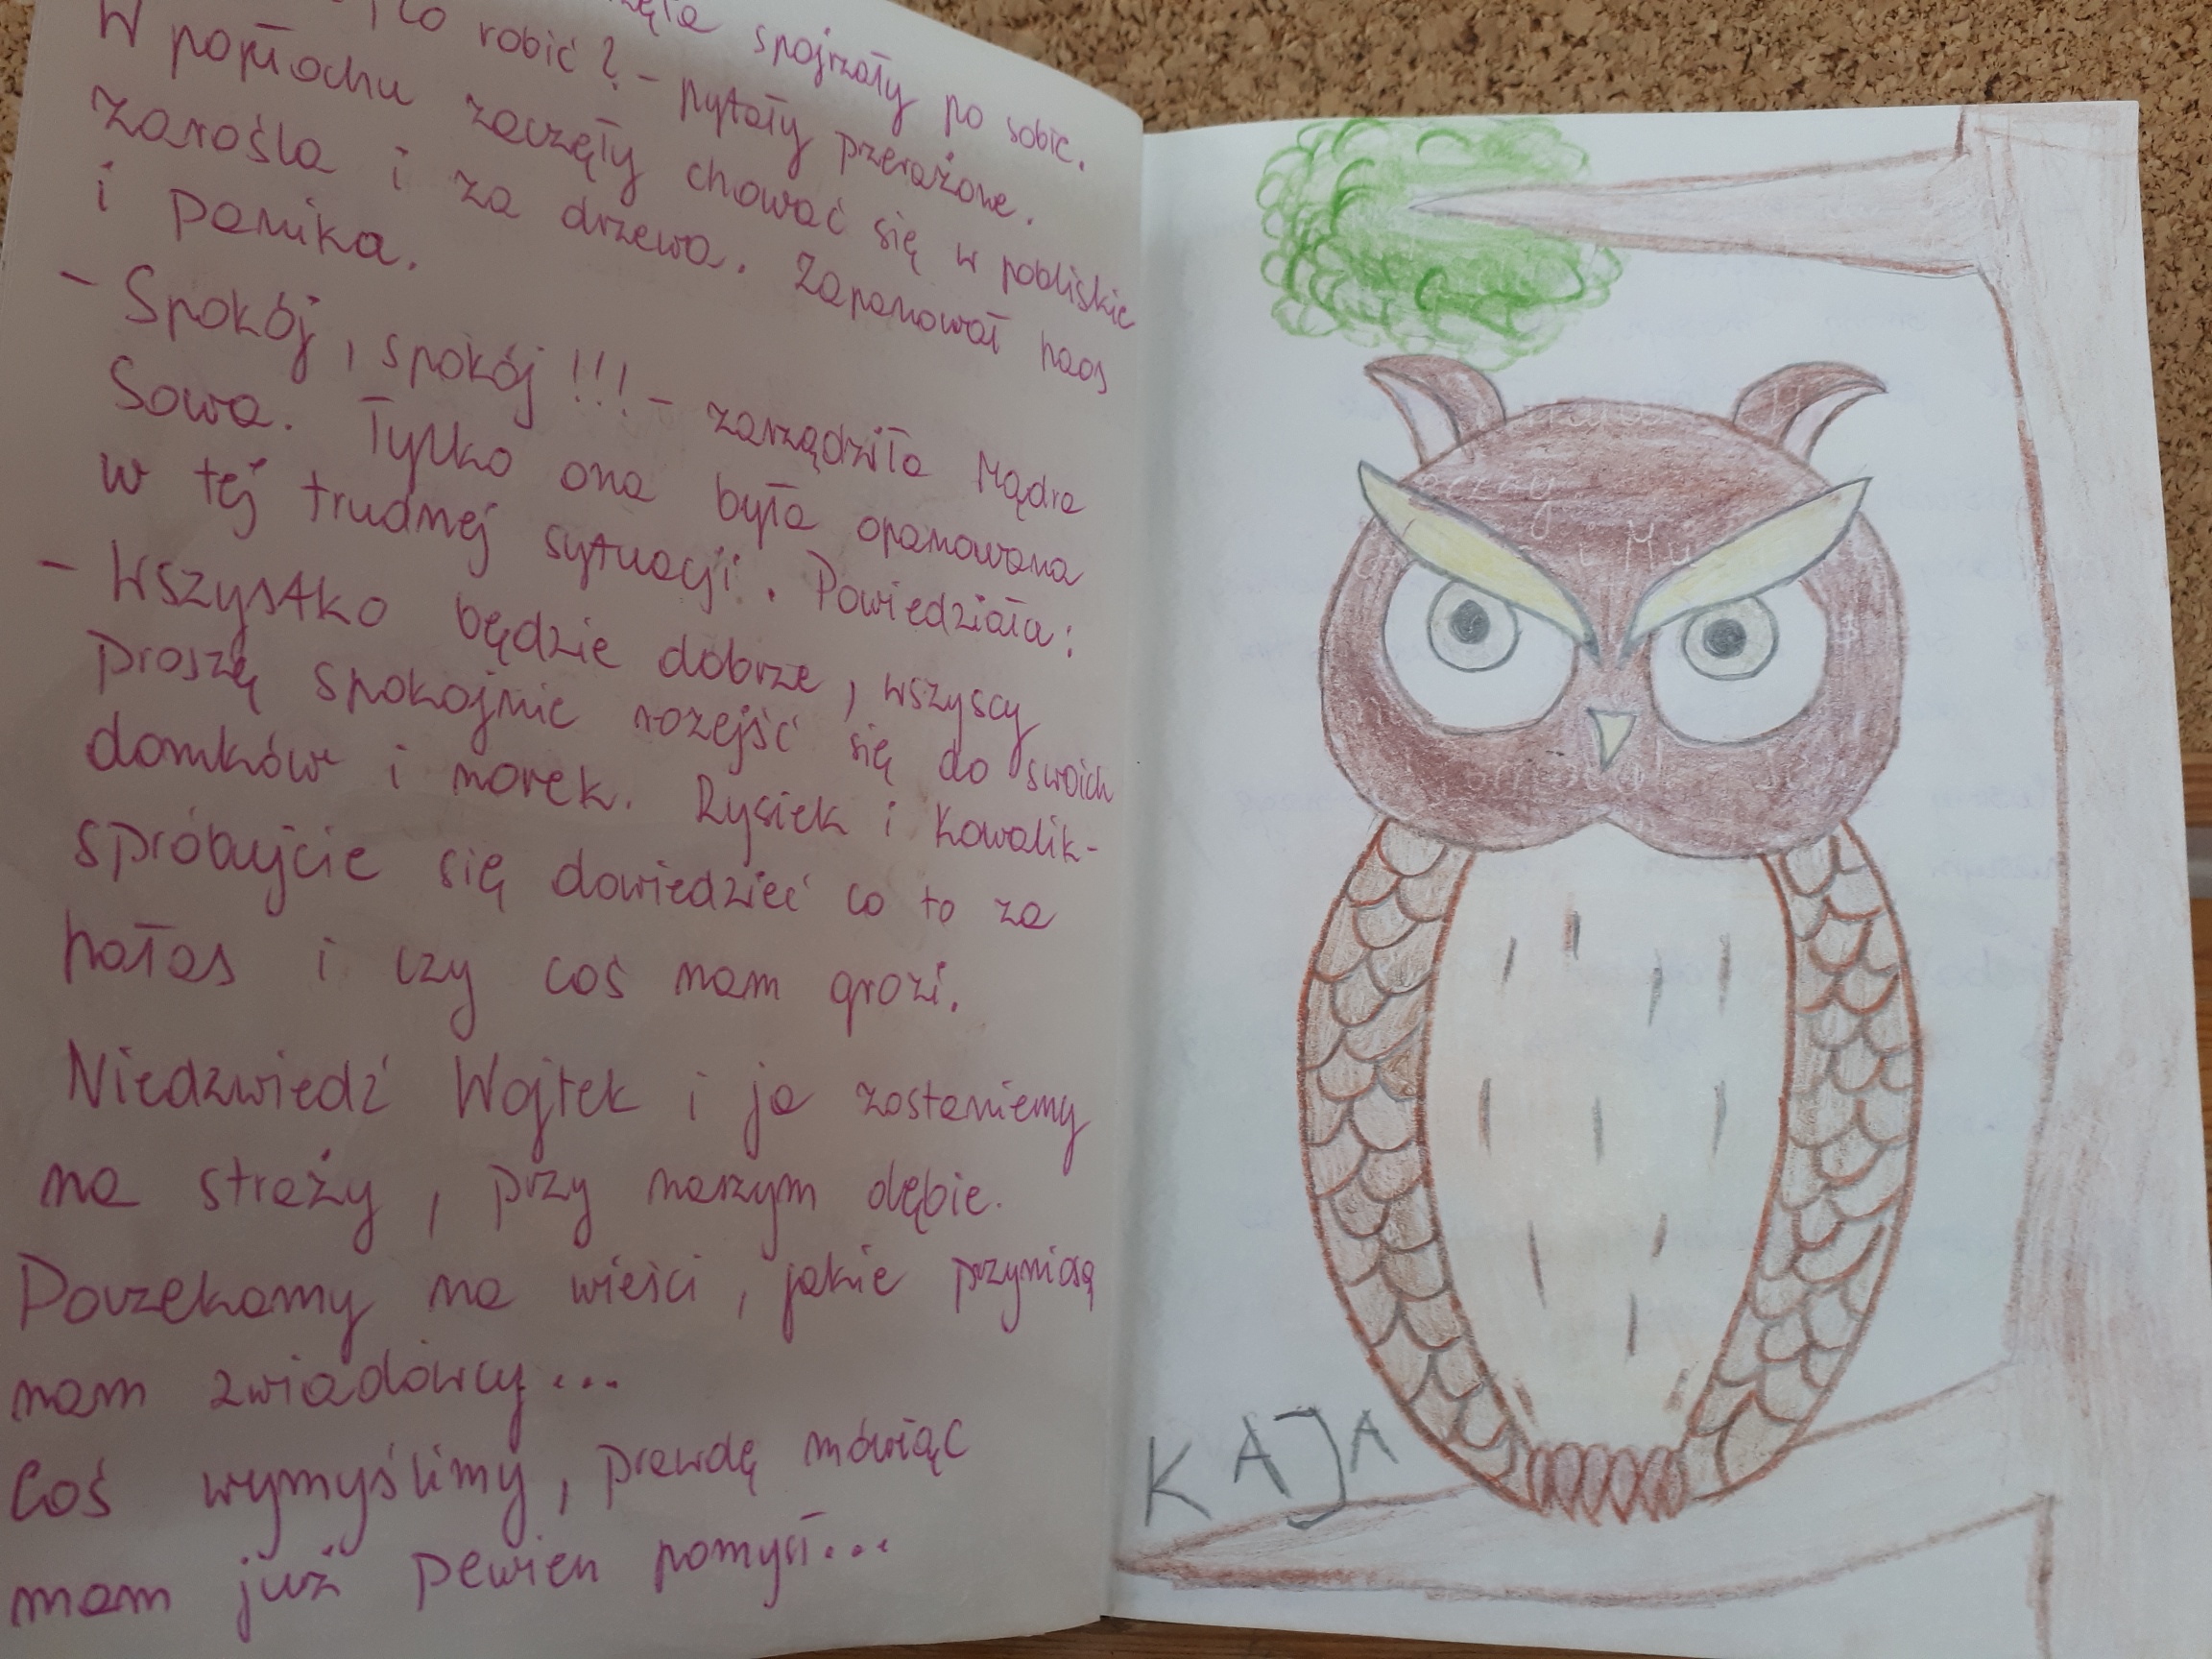 spojrzały po sobie.
co robić? - pytały przerażone.
W popłochu zaczęły chować się w pobliskie
zarośla i za drzewa. Zapanował haos
i panika.
- Spokój, spokój!!! - zarządziła Mądra
Sowa. Tylko ona była opanowana
w tej trudnej sytuacji. Powiedziała:
- Wszystko będzie dobrze, wszyscy
proszę spokojnie rozejść się do swoich
domków i norek. Rysiek i Kowalik -
spróbujcie się dowiedzieć co to za
hałas i czy coś nam grozi.
Niedzwiedź Wojtek i ja zostaniemy
na straży, przy naszym dębie.
Poczekamy na wieści, jakie przyniosą
nam zwiadowcy...
Coś wymyślimy, prawdę mówiąc
mam już pewien pomysł...
KAJA